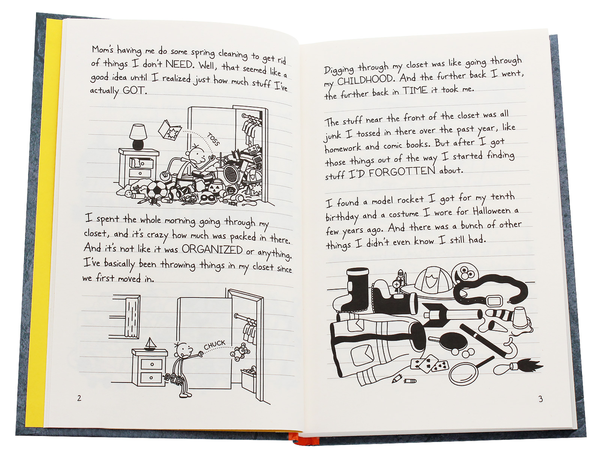 Mom's having me do some spring cleaning to get rid
of things I don't NEED. Well, that seemed like a
good idea until I realized just how much stuff I've
actually GOT.
TOSS
I spent the whole morning going through my
closet, and it's crazy how much was packed in there.
And it's not like it was ORGANIZED or anything.
I've basically been throwing things in my closet since
we first moved in.
CHUCK
2
Digging through my closet was like going through
my CHILDHOOD. And the further back I went,
the further back in TIME it took me.
The stuff near the front of the closet was all
junk I tossed in there over the past year, like
homework and comic books. But after I got
those things out of the way I started finding
stuff I'D FORGOTTEN about.
I found a model rocket I got for my tenth
birthday and a costume I wore for Halloween a
few years ago. And there was a bunch of other
things I didn't even know I still had.
3